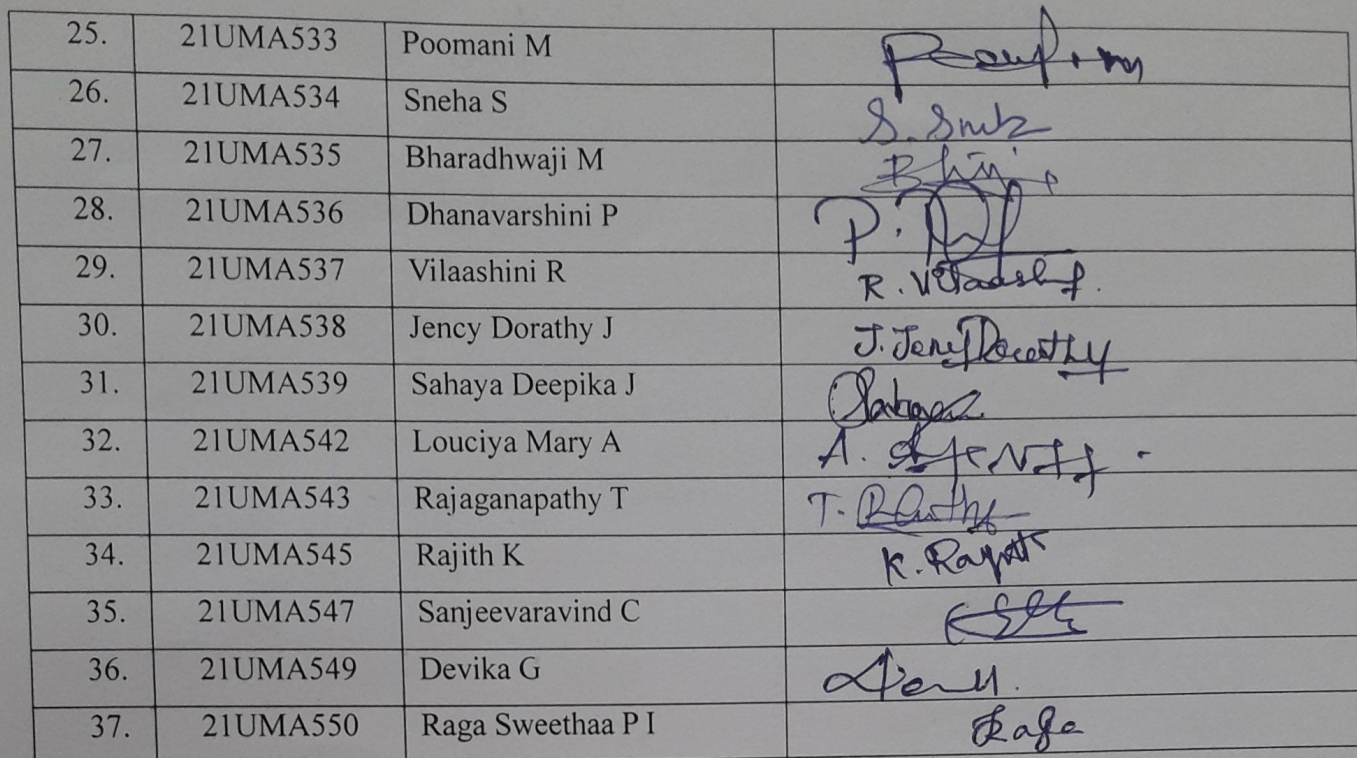 25. 21UMA533 Poomani M
26. 21UMA534 Sneha S S.
27. 21UMA535 Bharadhwaji M
28. 21UMA536 Dhanavarshini P P.
29. 21UMA537 Vilaashini R R.
30. 21UMA538 Jency Dorathy J J. Jency Dorathy
31. 21UMA539 Sahaya Deepika J
32. 21UMA542 Louciya Mary A A.
33. 21UMA543 Rajaganapathy T T.
34. 21UMA545 Rajith K K. Rajith
35. 21UMA547 Sanjeevaravind C
36. 21UMA549 Devika G
37. 21UMA550 Raga Sweethaa P I Raga